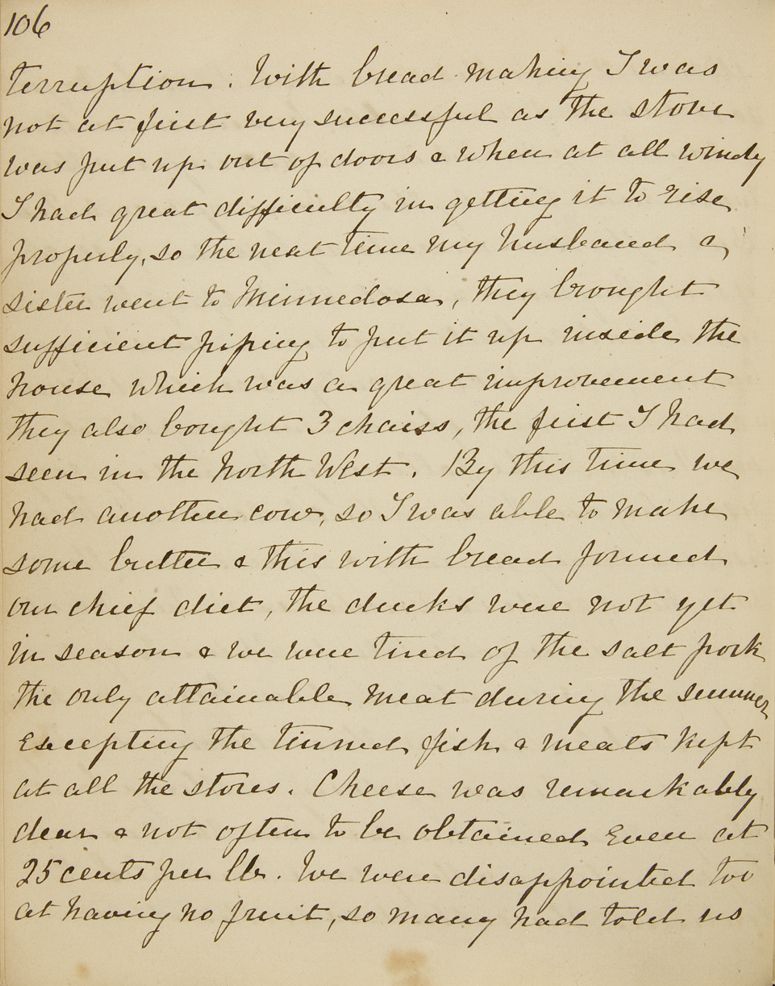 106
terruption. With bread making I was
not at first very successful as the stove
was put up out of doors & when at all windy
I had great difficulty in getting it to rise
properly, so the next time my husband &
sister went to Minnedosa, they brought
sufficient piping to put it up inside the
house which was a great improvement
they also bought 3 chairs, the first I had
seen in the North West. By this time we
had another cow, so I was able to make
some butter & this with bread formed
our chief diet, the ducks were not yet
in season & we were tired of the salt pork
the only attainable meat during the summer
Excepting the tinned fish & meats kept
at all the stores. Cheese was remarkably
dear & not often to be obtained Even at
25 cents per lb. We were disappointed too
at having no fruit, so many had told us